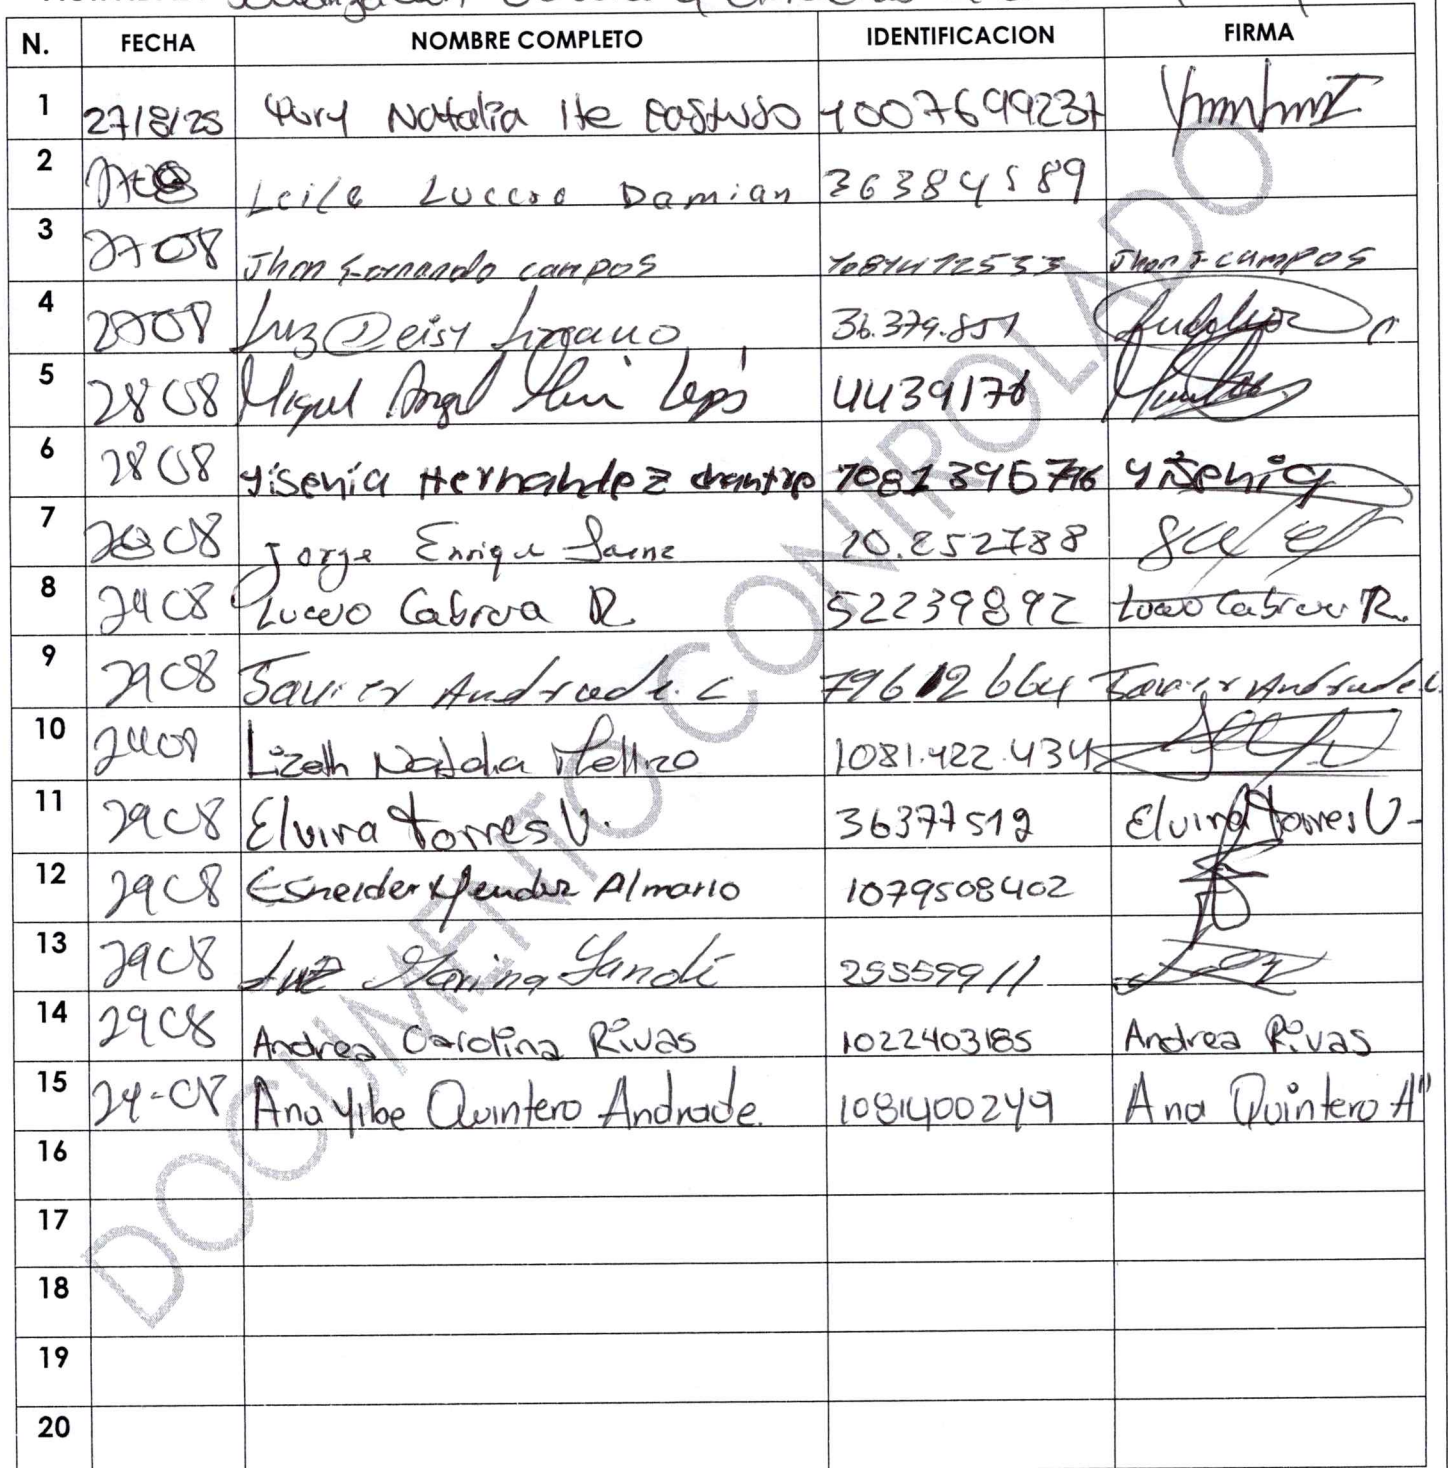 N. FECHA NOMBRE COMPLETO IDENTIFICACION FIRMA
1 27/8/25 Yury Natalia Ite 1007699237
2 Leila Lucero Damian 36384589
3 27 08 Jhon Fernando campos 1081412533 Jhon F campos
4 27 08 Luz Deisy Lozano 36.379.851
5 28 08 Miguel Angel 4439176
6 28 08 Yisenia Hernandez chantre 1081395796 Yisenia
7 08 Jorge Enrique Saenz 10.252788
8 29 08 Lucero Cabrera R. 52239892 Lucero Cabrera R.
9 29 08 Javier Andrade. C 79612664 Javier Andrade C.
10 29 08 Lizeth Natalia 1081.422.434
11 29 08 Elvira Torres V. 36377519 Elvira Torres V-
12 29 08 Esneider Mendez Almario 1079508402
13 29 08 Luz Marina Yandi 25559911
14 29 08 Andrea Carolina Rivas 1022403185 Andrea Rivas
15 29-08 Ana Yibe Quintero Andrade. 1081400249 Ana Quintero A
16
17
18
19
20
DOCUMENTO CONTROLADO